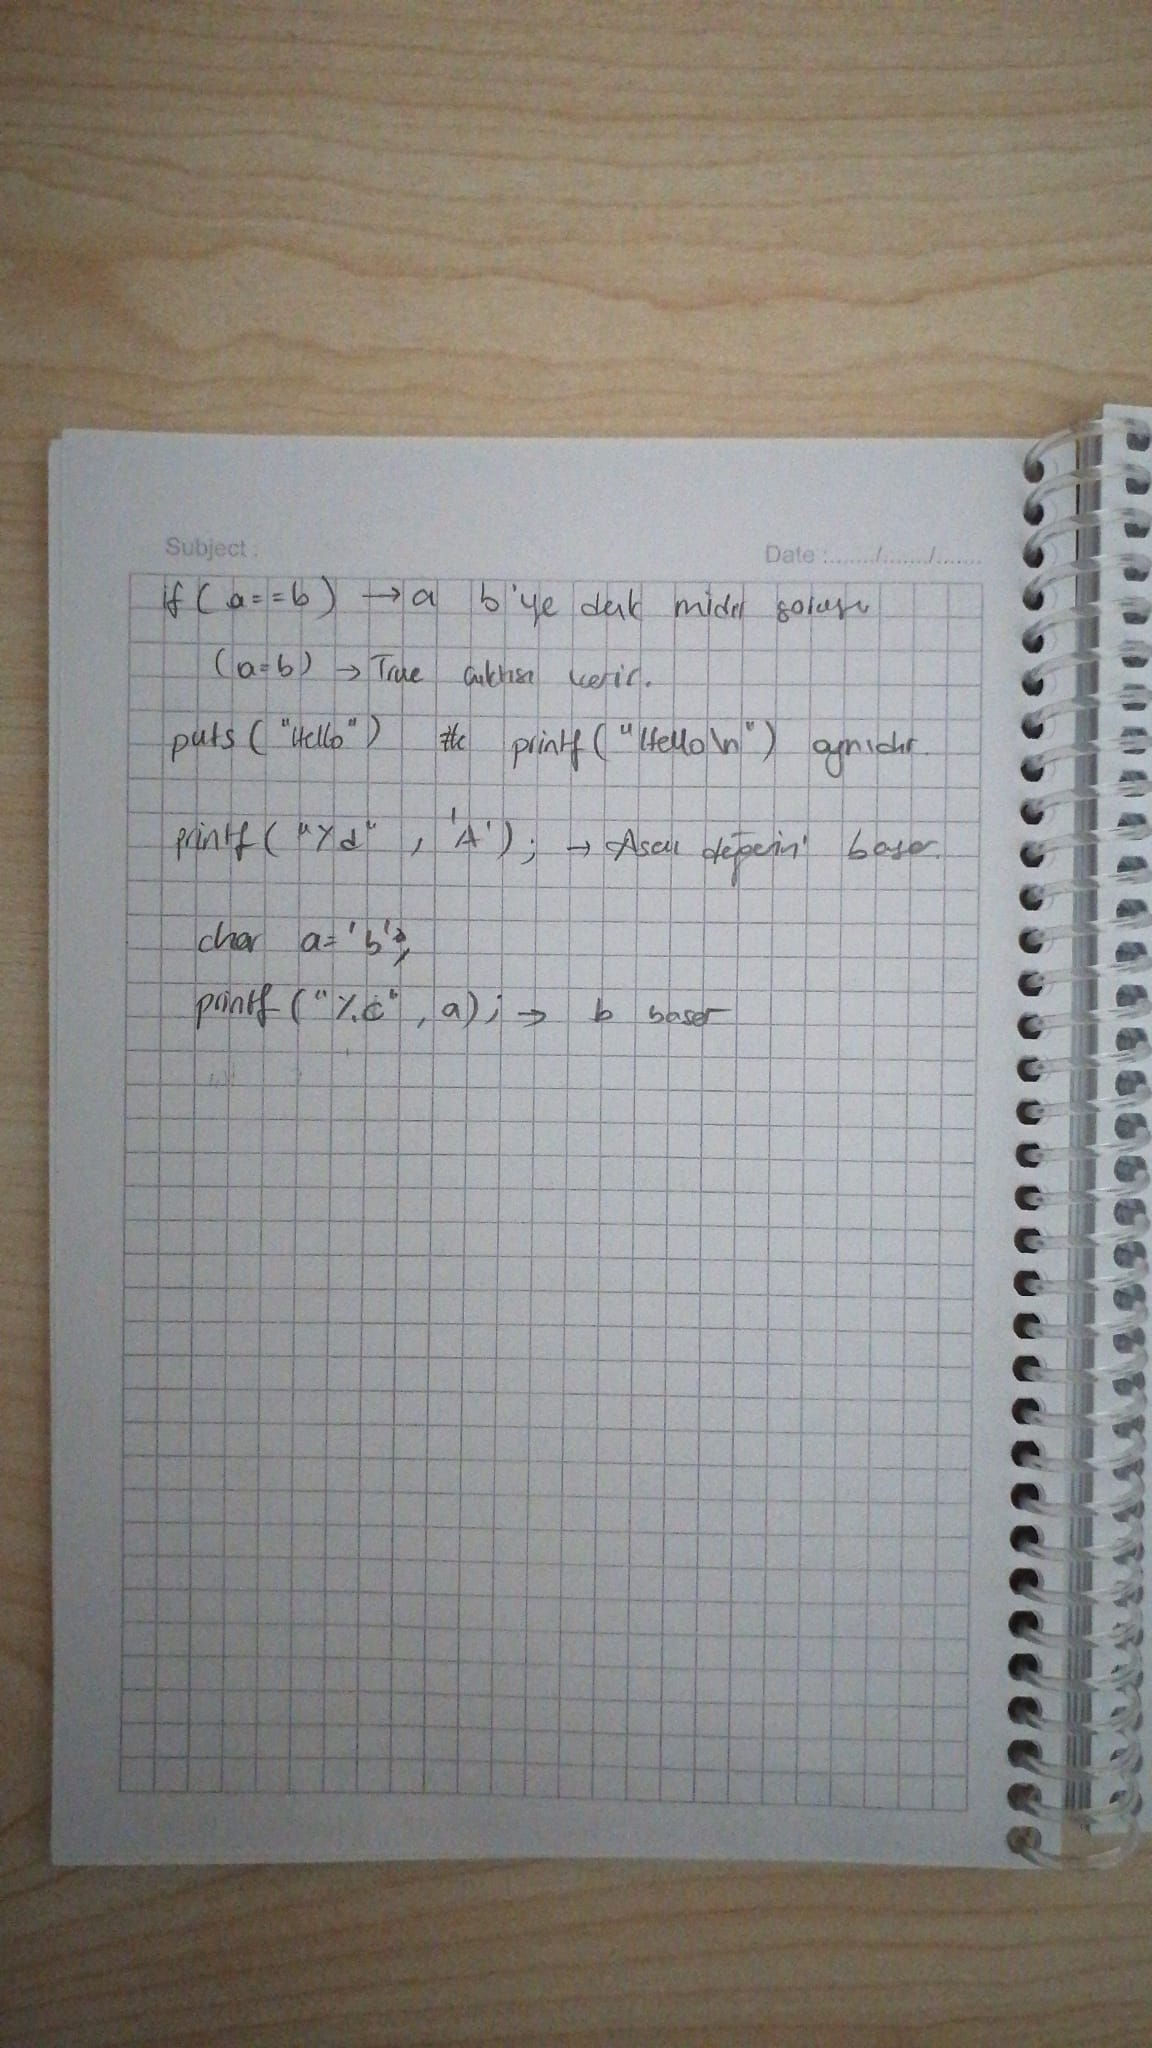 Subject :
Date :......../......../........
if ( a==b ) → a b'ye denk midir sorusu
(a=b) → True çıktısı verir.
puts ("Hello") ile printf ("Hello\n") aynıdır.
printf ( "%d" , 'A' ) ; → Ascii değerini basar.
char a= 'b';
printf ("%c" , a) ; → b basar